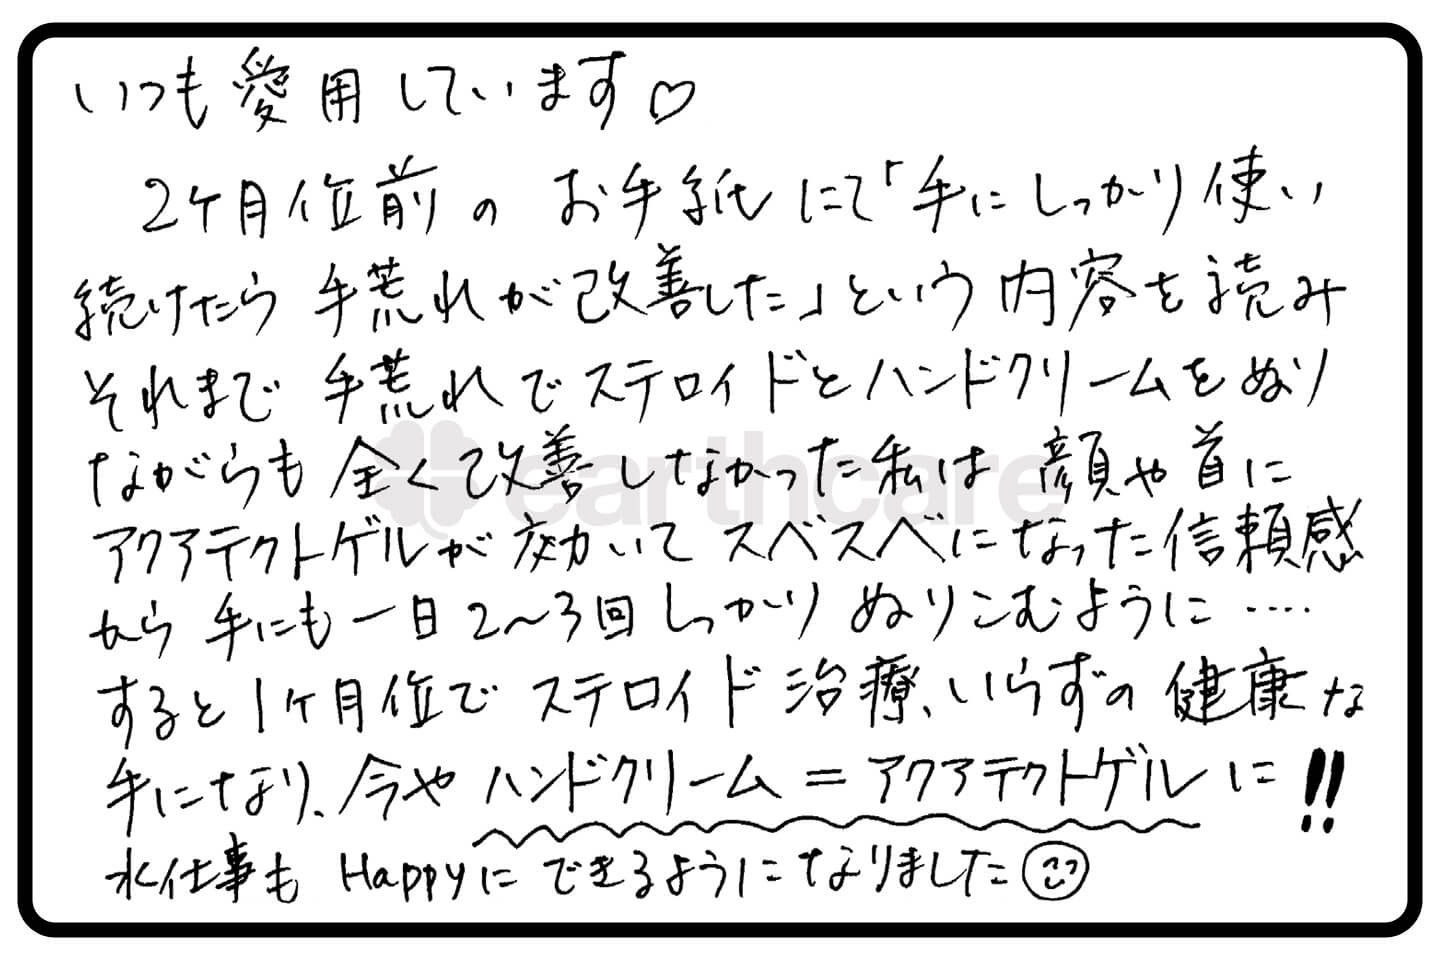 いつも愛用しています♡
2ケ月位前のお手紙にて「手にしっかり使い
続けたら手荒れが改善した」という内容を読み
それまで手荒れでステロイドとハンドクリームをぬり
ながらも全く改善しなかった私は顔や首に
アクアテクトゲルが効いてスベスベになった信頼感
から手にも一日2〜3回しっかりぬりこむように‥‥
すると1ケ月位でステロイド治療、いらずの健康な
手になり、今やハンドクリーム=アクアテクトゲルに!!
水仕事もHappyにできるようになりました
earthcare